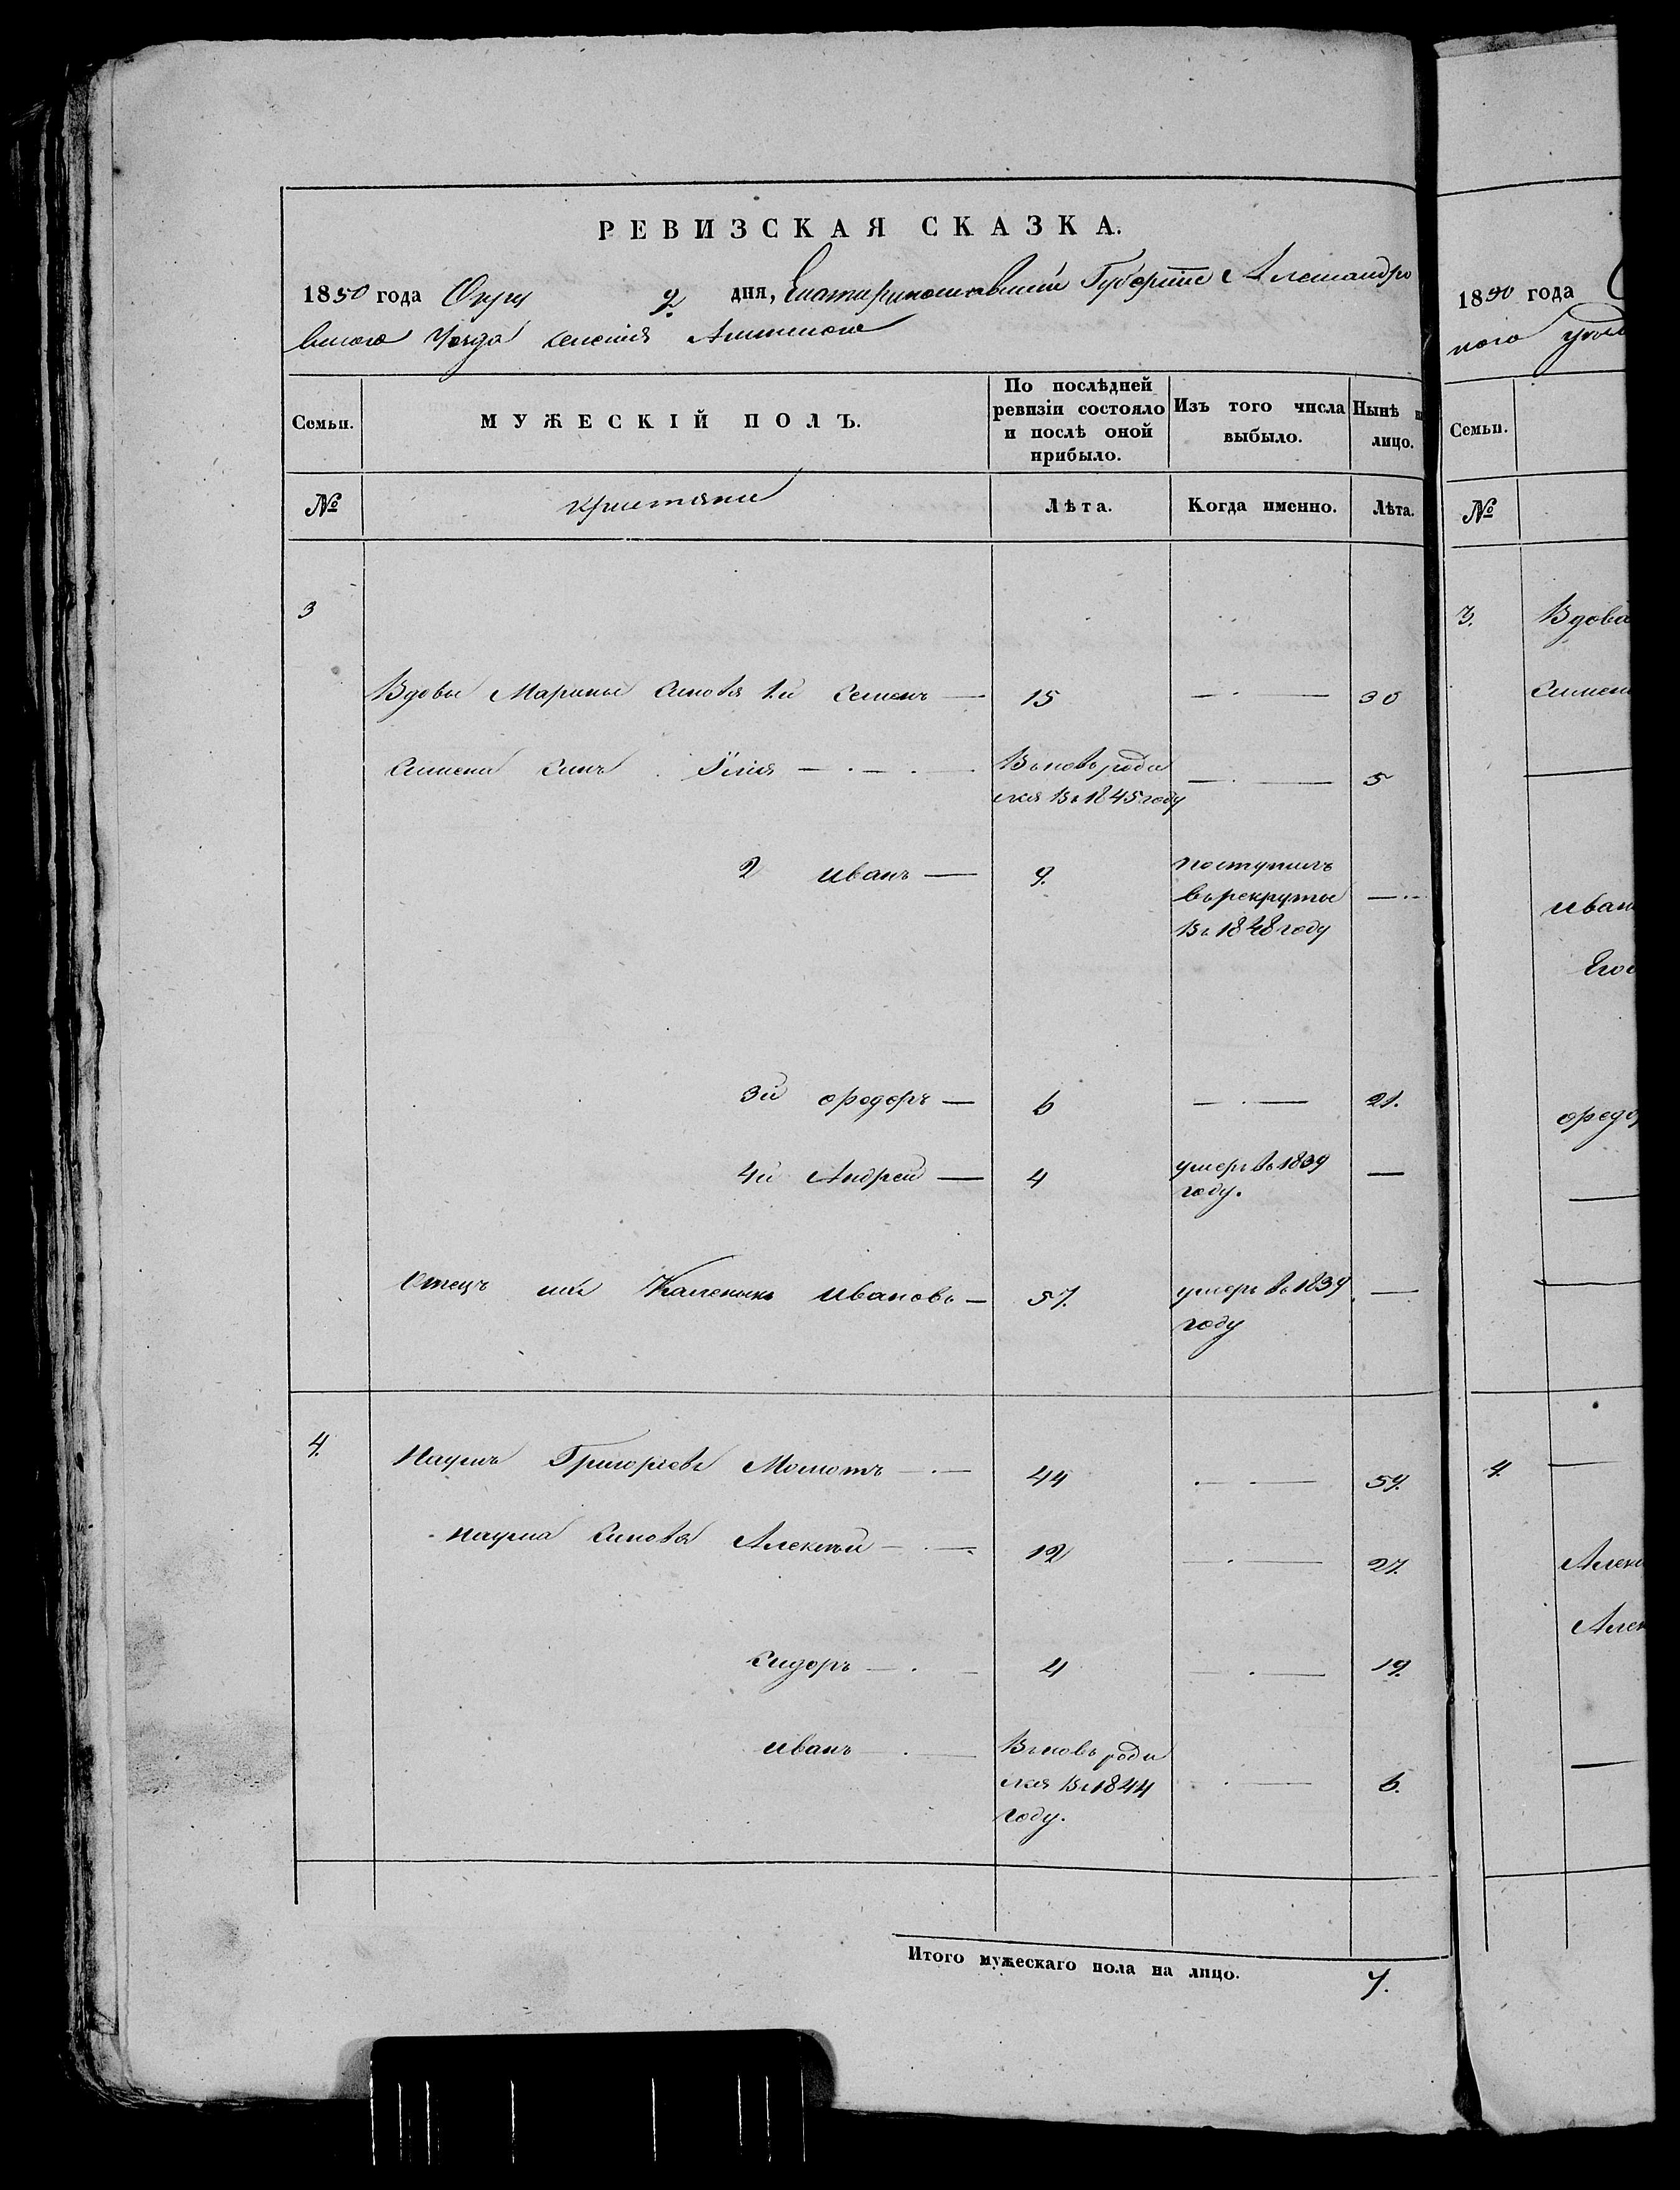 РЕВИЗСКАЯ СКАЗКА.
1850 года Окту 9. дня, Екатиринославский Губерніи Александро
вского Уезда селенія
Семьи.
МУЖЕСКІЙ ПОЛЪ.
По послѣдней ревизіи состояло и послѣ оной прибыло.
Изъ того числа выбыло.
Нынѣ н лицо.
№
Лѣта.
Когда именно.
Лѣта.
3
Вдовы Марины Синовя 1й Семенъ — 15 — · — 30
Симена Синъ Илія — · — · — Вьновь роди — · — 5
лся Вь 1845 году
2 Иванъ — 9. поступилъ
вьрекруты — · ·
Вь 1848 году
3й Ѳедоръ — 6 — · — 21.
4й Андрей — 4 умерь вь 1839 —
году.
Отецъ ихъ Каленикъ Ивановъ — 57. умерь вь 1839 —
году
4. Наумъ Григоріевъ Момотъ — · — 44 · — 59.
Наума Синовя Алексѣй — · — 12 — · — 27.
Сидоръ — · — 4 — · — 19.
Иванъ — · — Вьновь роди
лся Вь 1844 · — 6.
году.
Итого мужескаго пола на лицо. 7.
1850 года
Семьи.
№
3. Вдова
Симен
Иван
Ѳедо
4.
Алек
Алек